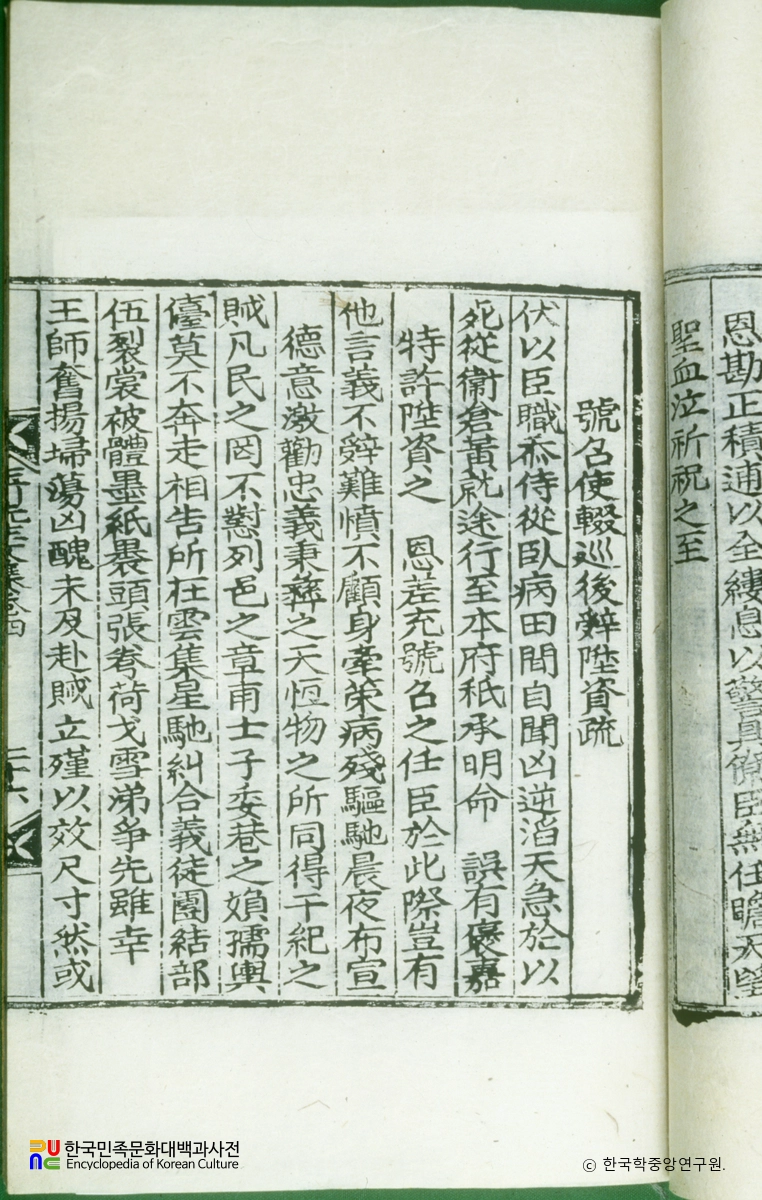 恩勘正積逋以全縷息以警具僚臣無任瞻天望
聖血泣祈祝之至
號召使輟巡後辭陞資疏
伏以臣職忝侍從臥病田間自聞凶逆滔天急於以
死從衛倉黃就途行至本府秖承明命 誤有優嘉
特許陞資之 恩差充號召之任臣於此際豈有
他言義不辭難憤不顧身牽策病殘驅馳晨夜布宣
德意激勸忠義秉彝之天恆物之所同得干紀之
賊凡民之罔不懟列邑之章甫士子委巷之媍孺輿
儓莫不奔走相告所在雲集星馳糾合義徒團結部
伍裂裳被體墨紙褁頭張弮荷戈雪涕爭先雖幸
王師奮揚埽蕩凶醜未及赴賊立殣以效尺寸然或
卷四
二十六
한국민족문화대백과사전
Encyclopedia of Korean Culture
ⓒ 한국학중앙연구원.